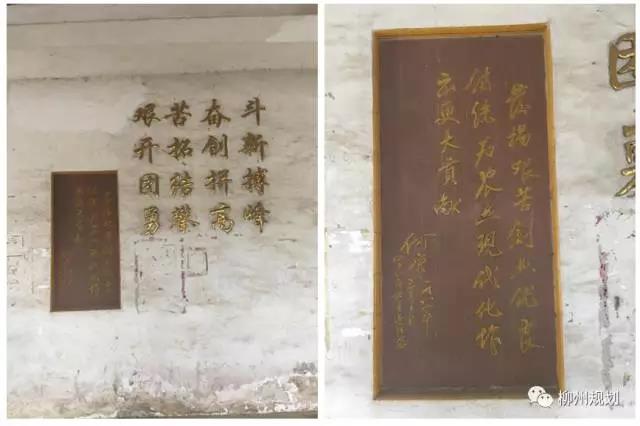 艰苦奋斗
开拓创新
团结拼搏
勇攀高峰
发扬艰苦创业优良
传统为农业现代化作
出更大贡献
何康
柳州规划